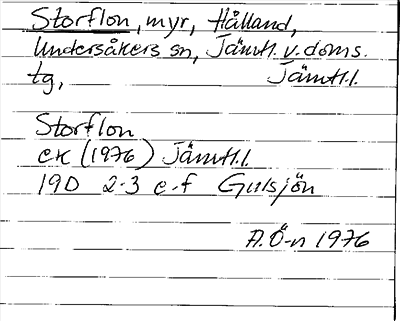 Storflon, myr, Hålland,
Undersåkers sn, Jämtl. v. doms.
tg, Jämtl.l.
Storflon
ek (1976) Jämtl.l.
19D 2-3 e-f Gulsjön
A.Ö-n 1976